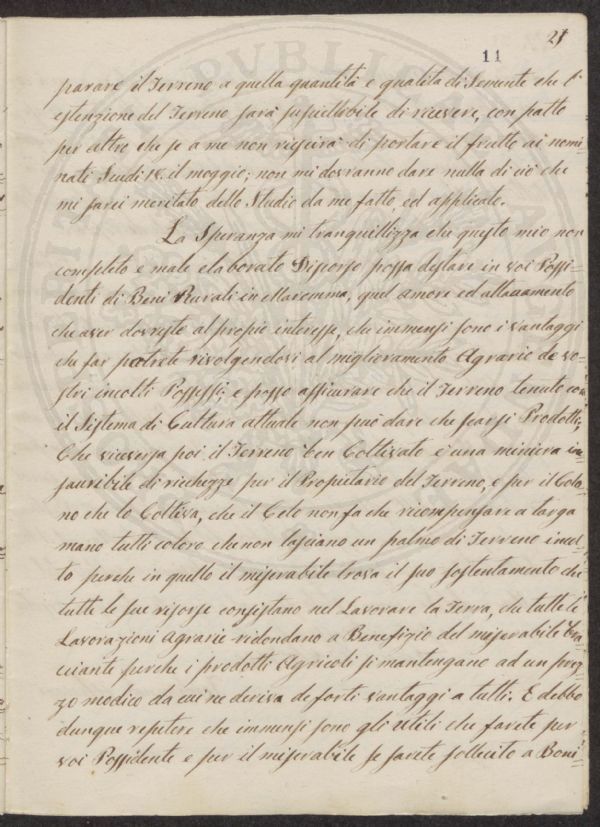 21
11
parare il Terreno a quella quantità e qualità di Semente che l'
estenzione del Terreno sarà suscettibile di ricevere, con patto
per altro che se a me non riescirà di portare il frutto ai nomi=
nati Scudi 18. il moggio; non mi dovranno dare nulla di ciò che
mi sarei meritato dello Studio da me fatto, ed applicato.
La Speranza mi tranquillizza che questo mio non
completo e male elaborato Discorso possa destare in voi Possi=
denti di Beni Rurali in Maremma, quel amore ed attaccamento
che aver dovreste al proprio interesse, che immensi sono i vantaggi
che far potrete rivolgendovi al miglieramento Agrario de vo=
stri incolti Possessi; e posso assicurare che il Terreno tenuto con
il Sistema di Cultura attuale non può dare che scarsi Prodotti;
Che viceversa poi il Terreno ben Coltivato è una miniera ine=
sauribile di richezze per il Propietario del Terreno, e per il Colo=
no che lo Coltiva, che il Celo non fa che ricompensare a larga
mano tutti coloro che non lasciano un palmo di Terreno incul=
to perche in quello il miserabile trova il suo sostentamento che
tutte le sue risorse consistano nel Lavorare la Terra, che tutte le
Lavorazioni Agrarie ridondano a Benefizio del miserabile bra=
cciante perche i prodotti Agricoli si mantengano ad un prez=
zo modico da cui ne deriva de forti vantaggi a tutti. E debbo
dunque repetere che immensi sono gli utili che farete per
voi Possidente e per il miserabile se sarete sollecito a Boni=